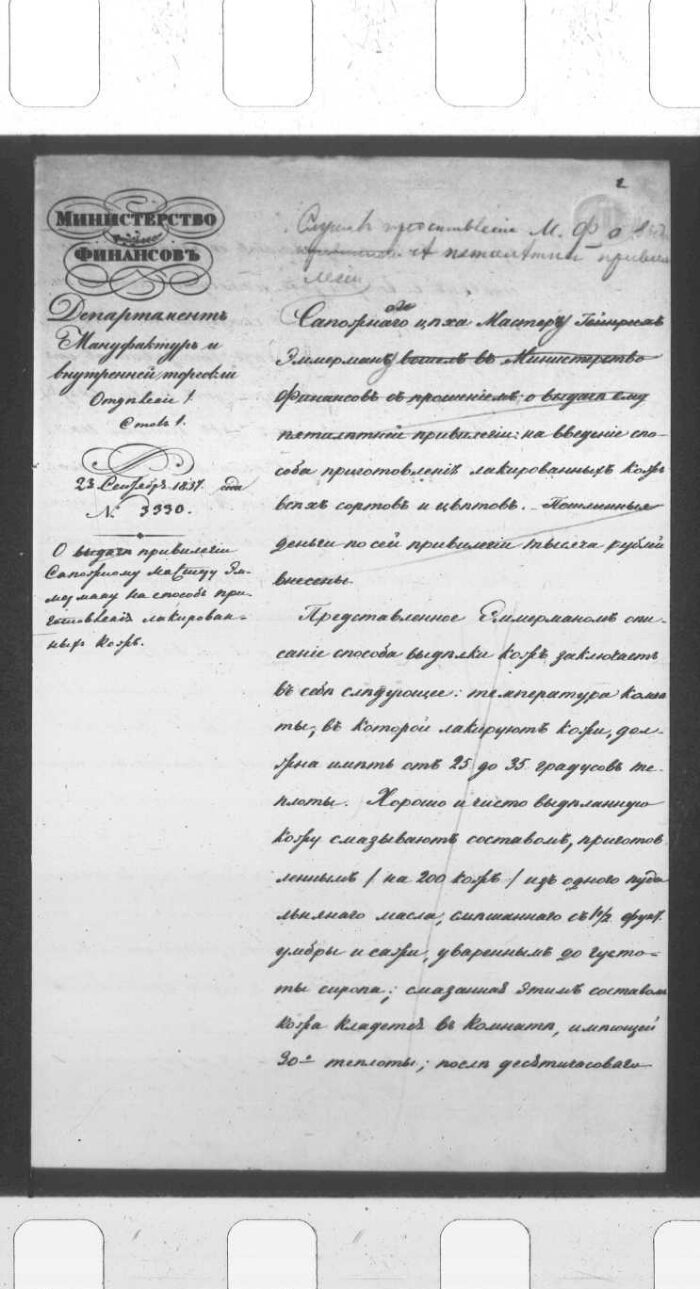 2
МИНИСТЕРСТВО
ФИНАНСОВЪ
Департаментъ
Мануфактуръ и
внутренней торговли
Отдѣленіе 1.
Столъ 1.
23 Сентября 1837 года
№ 3330.
О выдачѣ привилегіи
Сапожному мастеру Эм-
мерману на способъ при-
готовленія лакирован-
ныхъ кожъ.
М. Ф. о
пятилѣтней привил
легіи
Сапожнаго цѣха Мастеръ Гейнрихъ
Эммерманъ вошелъ въ Министерство
Финансовъ съ прошеніемъ о выдачѣ ему
пятилѣтней привилегіи: на введеніе спо-
соба приготовленія лакированныхъ кожъ
всѣхъ сортовъ и цвѣтовъ. Пошлинныя
деньги по сей привилегіи тысяча рублей
внесены.
Представленное Еммерманомъ опи-
саніе способа выдѣлки кожъ заключаетъ
въ себѣ слѣдующее: температура комна
ты, въ которой лакируютъ кожи, дол-
жна имѣть отъ 25 до 35 градусовъ те-
плоты. Хорошо и чисто выдѣланную
кожу смазываютъ составомъ, приготов
леннымъ / на 200 кожъ / изъ одного пуда
льнянаго масла, смѣшаннаго съ 1½ фунт.
умбры и сажи, увареннымъ до густо-
ты сиропа; смазанная этимъ составомъ
кожа кладется въ комнатѣ, имѣющей
30° теплоты; послѣ десятичасоваго